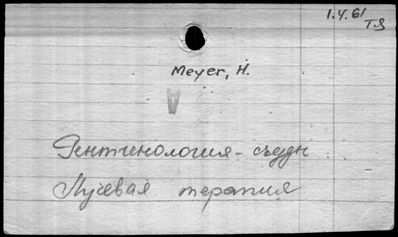 1.4.61
TS
Meyer, H.
V
Рентгенология - съезды
Лучевая терапия